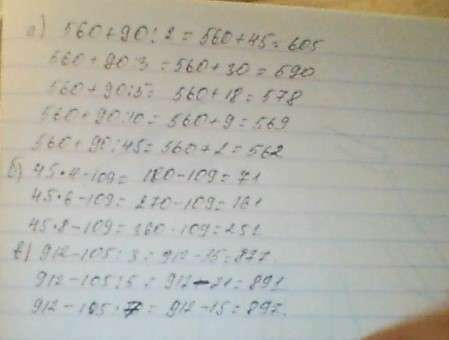 а) 560+90:2=560+45=605
560+90:3=560+30=590
560+90:5= 560+18=578
560+90:10=560+9=569
560+90:45=560+2=562
б) 45•4-109= 180-109=71
45•6-109=270-109=161
45•8-109=360-109=251
в) 912-105:3=912-35=877.
912-105:5=912-21=891
912-105:7=912-15=897.